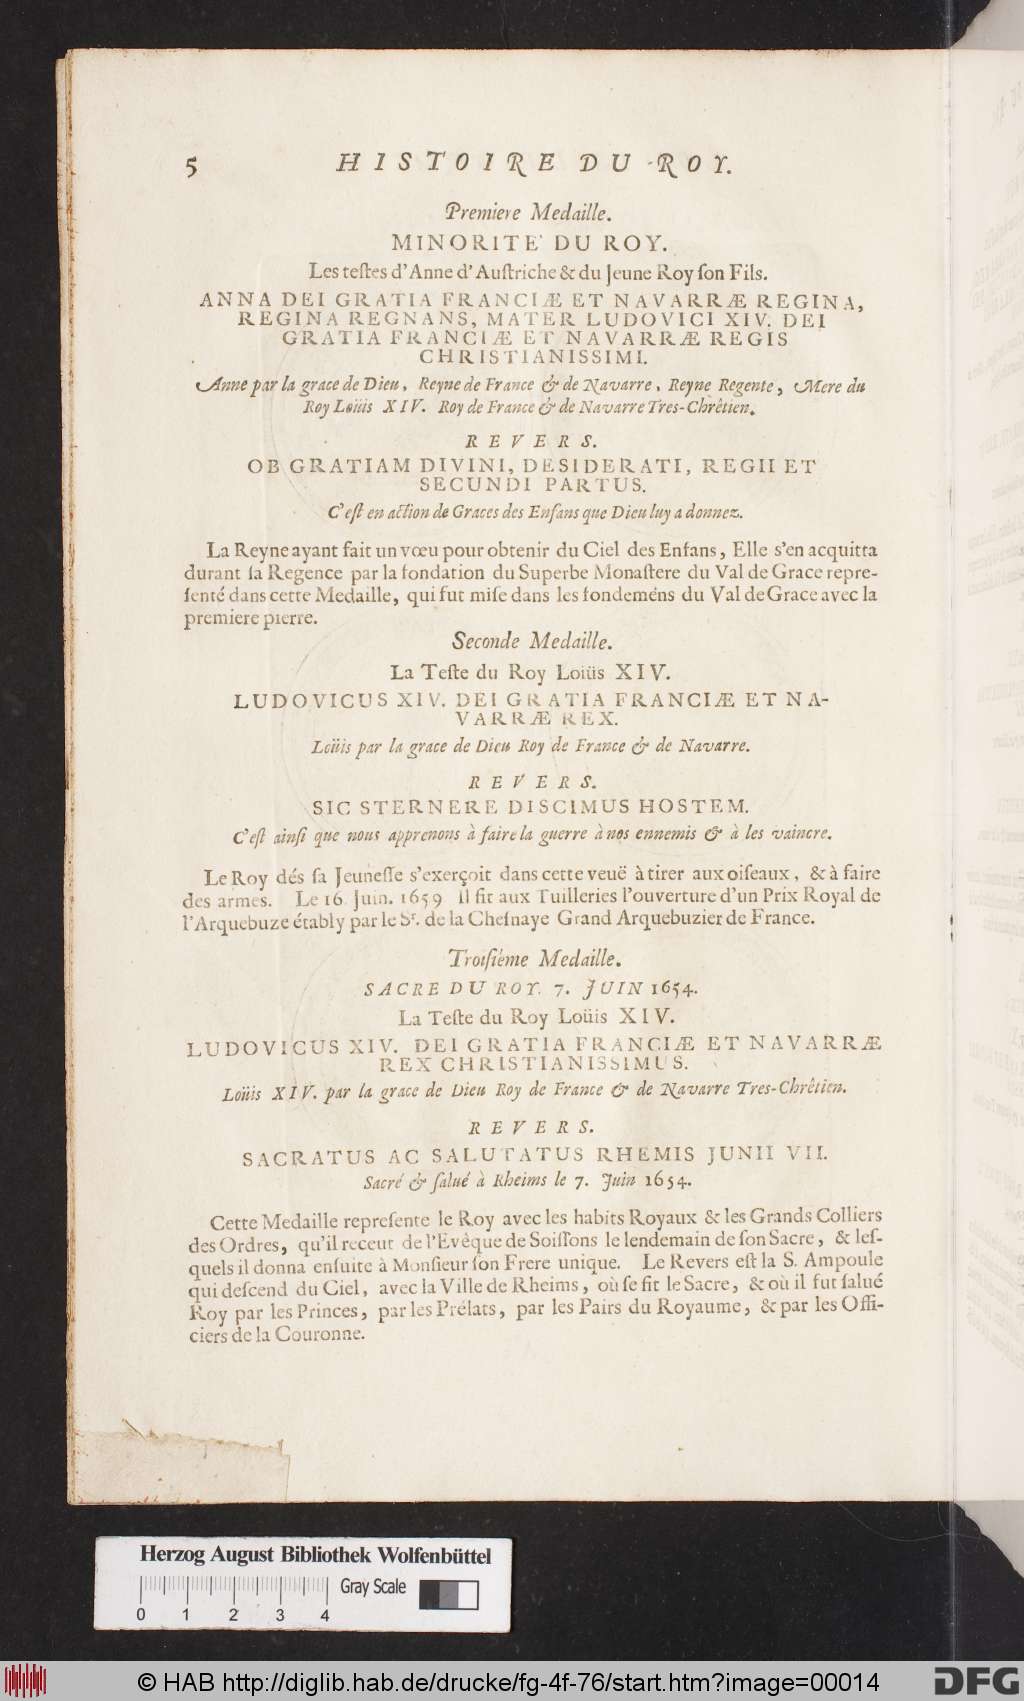 5 HISTOIRE DU ROY.
Premiere Medaille.
MINORITE' DU ROY.
Les teſtes d'Anne d'Auſtriche & du Jeune Roy ſon Fils.
ANNA DEI GRATIA FRANCIÆ ET NAVARRÆ REGINA,
REGINA REGNANS, MATER LUDOVICI XIV. DEI
GRATIA FRANCIÆ ET NAVARRÆ REGIS
CHRISTIANISSIMI.
Anne par la grace de Dieu, Reyne de France & de Navarre, Reyne Regente, Mere du
Roy Loüis XIV. Roy de France & de Navarre Tres-Chrêtien.
REVERS.
OB GRATIAM DIVINI, DESIDERATI, REGII ET
SECUNDI PARTUS.
C'eſt en action de Graces des Enfans que Dieu luy a donnez.
La Reyne ayant fait un vœu pour obtenir du Ciel des Enfans, Elle s'en acquitta
durant ſa Regence par la fondation du Superbe Monaſtere du Val de Grace repre-
ſenté dans cette Medaille, qui fut miſe dans les fondeméns du Val de Grace avec la
premiere pierre.
Seconde Medaille.
La Teſte du Roy Loiüs XIV.
LUDOVICUS XIV. DEI GRATIA FRANCIÆ ET NA-
VARRÆ REX.
Loüis par la grace de Dieu Roy de France & de Navarre.
REVERS.
SIC STERNERE DISCIMUS HOSTEM.
C'eſt ainſi que nous apprenons à faire la guerre à nos ennemis & à les vaincre.
Le Roy dés ſa Jeuneſſe s'exerçoit dans cette veuë à tirer aux oiſeaux, & à faire
des armes. Le 16. Juin. 1659 il fit aux Tuilleries l'ouverture d'un Prix Royal de
l'Arquebuze étably par le Sr. de la Cheſnaye Grand Arquebuzier de France.
Troiſiéme Medaille.
SACRE DU ROY. 7. JUIN 1654.
La Teſte du Roy Loüis XIV.
LUDOVICUS XIV. DEI GRATIA FRANCIÆ ET NAVARRÆ
REX CHRISTIANISSIMUS.
Loüis XIV. par la grace de Dieu Roy de France & de Navarre Tres-Chrêtien.
REVERS.
SACRATUS AC SALUTATUS RHEMIS JUNII VII.
Sacré & ſalué à Rheims le 7. Juin 1654.
Cette Medaille repreſente le Roy avec les habits Royaux & les Grands Colliers
des Ordres, qu'il receut de l'Evêque de Soiſſons le lendemain de ſon Sacre, & leſ-
quels il donna enſuite à Monſieur ſon Frere unique. Le Revers eſt la S. Ampoule
qui deſcend du Ciel, avec la Ville de Rheims, où ſe fit le Sacre, & où il fut ſalué
Roy par les Princes, par les Prélats, par les Pairs du Royaume, & par les Offi-
ciers de la Couronne.
Herzog August Bibliothek Wolfenbüttel
Gray Scale
0 1 2 3 4
© HAB http://diglib.hab.de/drucke/fg-4f-76/start.htm?image=00014
DFG